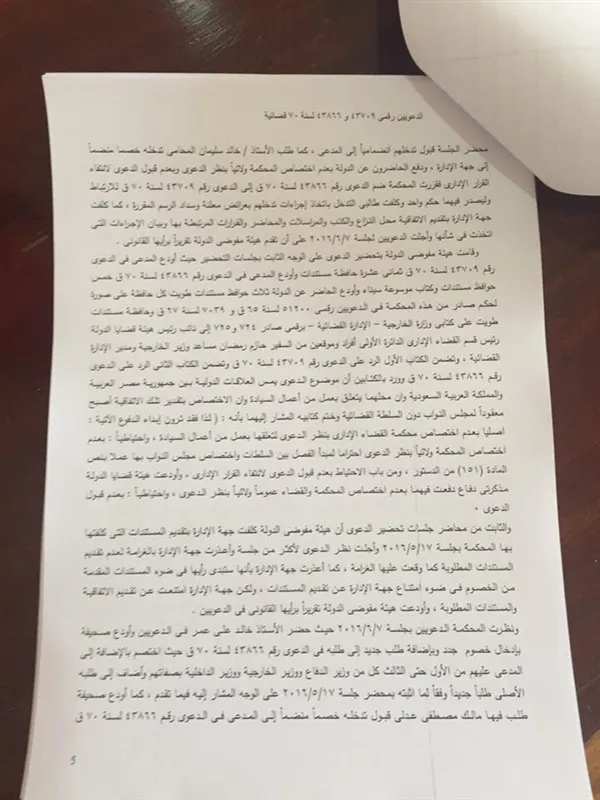 الدعويين رقمى ٤٣٧٠٩ و ٤٣٨٦٦ لسنة ٧٠ قضائية
محضر الجلسة قبول تدخلهم انضمامياً إلى المدعى ، كما طلب الأستاذ / خالد سليمان المحامى تدخله خصما منضماً
إلى جهة الإدارة ، ودفع الحاضرون عن الدولة بعدم اختصاص المحكمة ولائياً بنظر الدعوى وبعدم قبول الدعوى لانتفاء
القرار الإدارى فقررت المحكمة ضم الدعوى رقم ٤٣٨٦٦ لسنة ٧٠ ق إلى الدعوى رقم ٤٣٧٠٩ لسنة ٧٠ ق للارتباط
وليصدر فيهما حكم واحد وكلفت طالبى التدخل باتخاذ إجراءات تدخلهم بعرائض معلنة وسداد الرسم المقررة ، كما كلفت
جهة الإدارة بتقديم الاتفاقية محل النزاع والكتب والمراسلات والمحاضر والقرارات المرتبطة بها وبيان الإجراءات التى
اتخذت فى شأنها وأجلت الدعويين لجلسة ٢٠١٦/٦/٧ على أن تقدم هيئة مفوضى الدولة تقريراً برأيها القانونى .
وقامت هيئة مفوضى الدولة بتحضير الدعوى على الوجه الثابت بجلسات التحضير حيث أودع المدعى فى الدعوى
رقم ٤٣٧٠٩ لسنة ٧٠ ق ثمانى عشرة حافظة مستندات وأودع المدعى فى الدعوى رقم ٤٣٨٦٦ لسنة ٧٠ ق خمس
حوافظ مستندات وكتاب موسوعة سيناء وأودع الحاضر عن الدولة ثلاث حوافظ مستندات طويت كل حافظة على صورة
لحكم صادر من هذه المحكمة فى الدعويين رقمى ٥١٢٠٠ لسنة ٦٥ ق و ٧٠٣٩ لسنة ٦٧ ق وحافظة مستندات
طويت على كتابى وزارة الخارجية – الإدارة القضائية – برقمى صادر ٧٢٤ و ٧٢٥ إلى نائب رئيس هيئة قضايا الدولة
رئيس قسم القضاء الإدارى الدائرة الأولى أفراد وموقعين من السفير حازم رمضان مساعد وزير الخارجية ومدير الإدارة
القضائية ، وتضمن الكتاب الأول الرد على الدعوى رقم ٤٣٧٠٩ لسنة ٧٠ ق وتضمن الكتاب الثانى الرد على الدعوى
رقم ٤٣٨٦٦ لسنة ٧٠ ق وورد بالكتابين أن موضوع الدعوى يمس العلاقات الدولية بين جمهورية مصر العربية
والمملكة العربية السعودية وان محلهما يتعلق بعمل من أعمال السيادة وان الاختصاص بتقدير تلك الاتفاقية أصبح
معقوداً لمجلس النواب دون السلطة القضائية وختم كتابيه المشار إليهما بأنه : ( لذا فقد ترون إبداء الدفوع الآتية :
اصليا بعدم اختصاص محكمة القضاء الإدارى بنظر الدعوى لتعلقها بعمل من أعمال السيادة ، واحتياطياً : بعدم
اختصاص المحكمة ولائياً بنظر الدعوى احتراما لمبدأ الفصل بين السلطات واختصاص مجلس النواب بها عملا بنص
المادة (١٥١) من الدستور ، ومن باب الاحتياط بعدم قبول الدعوى لانتفاء القرار الإدارى ، وأودعت هيئة قضايا الدولة
مذكرتى دفاع دفعت فيهما بعدم اختصاص المحكمة والقضاء عموماً ولائياً بنظر الدعوى ، واحتياطياً : بعدم قبول
الدعوى .
والثابت من محاضر جلسات تحضير الدعوى أن هيئة مفوضى الدولة كلفت جهة الإدارة بتقديم المستندات التى كلفتها
بها المحكمة بجلسة ٢٠١٦/٥/١٧ وأجلت نظر الدعوى لأكثر من جلسة وأعذرت جهة الإدارة بالغرامة لعدم تقديم
المستندات المطلوبة كما وقعت عليها الغرامة ، كما أعذرت جهة الإدارة بأنها ستبدى رأيها فى ضوء المستندات المقدمة
من الخصوم فى ضوء امتناع جهة الإدارة عن تقديم المستندات ، ولكن جهة الإدارة امتنعت عن تقديم الاتفاقية
والمستندات المطلوبة ، وأودعت هيئة مفوضى الدولة تقريراً برأيها القانونى فى الدعويين .
ونظرت المحكمة الدعويين بجلسة ٢٠١٦/٦/٧ حيث حضر الأستاذ خالد على عمر فى الدعويين وأودع صحيفة
بإدخال خصوم جدد وبإضافة طلب جديد إلى طلبه فى الدعوى رقم ٤٣٨٦٦ لسنة ٧٠ ق حيث اختصم بالإضافة إلى
المدعى عليهم من الأول حتى الثالث كل من وزير الدفاع ووزير الخارجية ووزير الداخلية بصفاتهم وأضاف إلى طلبه
الأصلى طلباً جديداً وفقاً لما اثبته بمحضر جلسة ٢٠١٦/٥/١٧ على الوجه المشار إليه فيما تقدم ، كما أودع صحيفة
طلب فيها مالك مصطفى عدلى قبول تدخله خصماً منضماً إلى المدعى فى الدعوى رقم ٤٣٨٦٦ لسنة ٧٠ ق
5